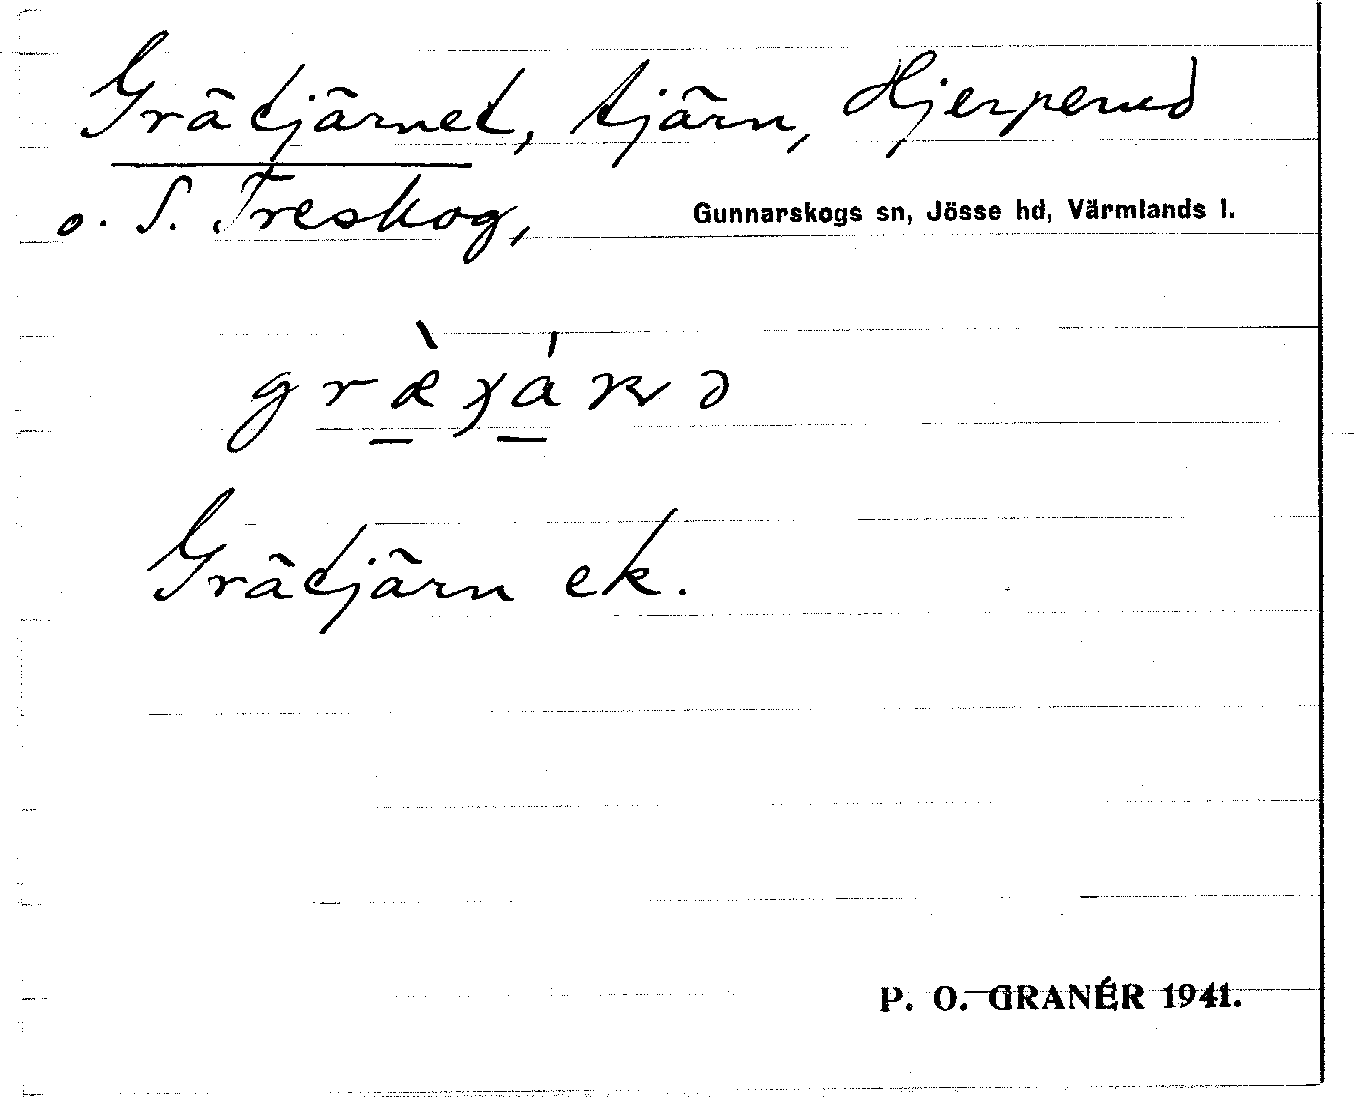 Grätjärnet, tjärn, Hjerperud
o. S. Treskog, Gunnarskogs sn, Jösse hd, Värmlands l.
Grätjärn ek.
P. O. GRANÉR 1941.